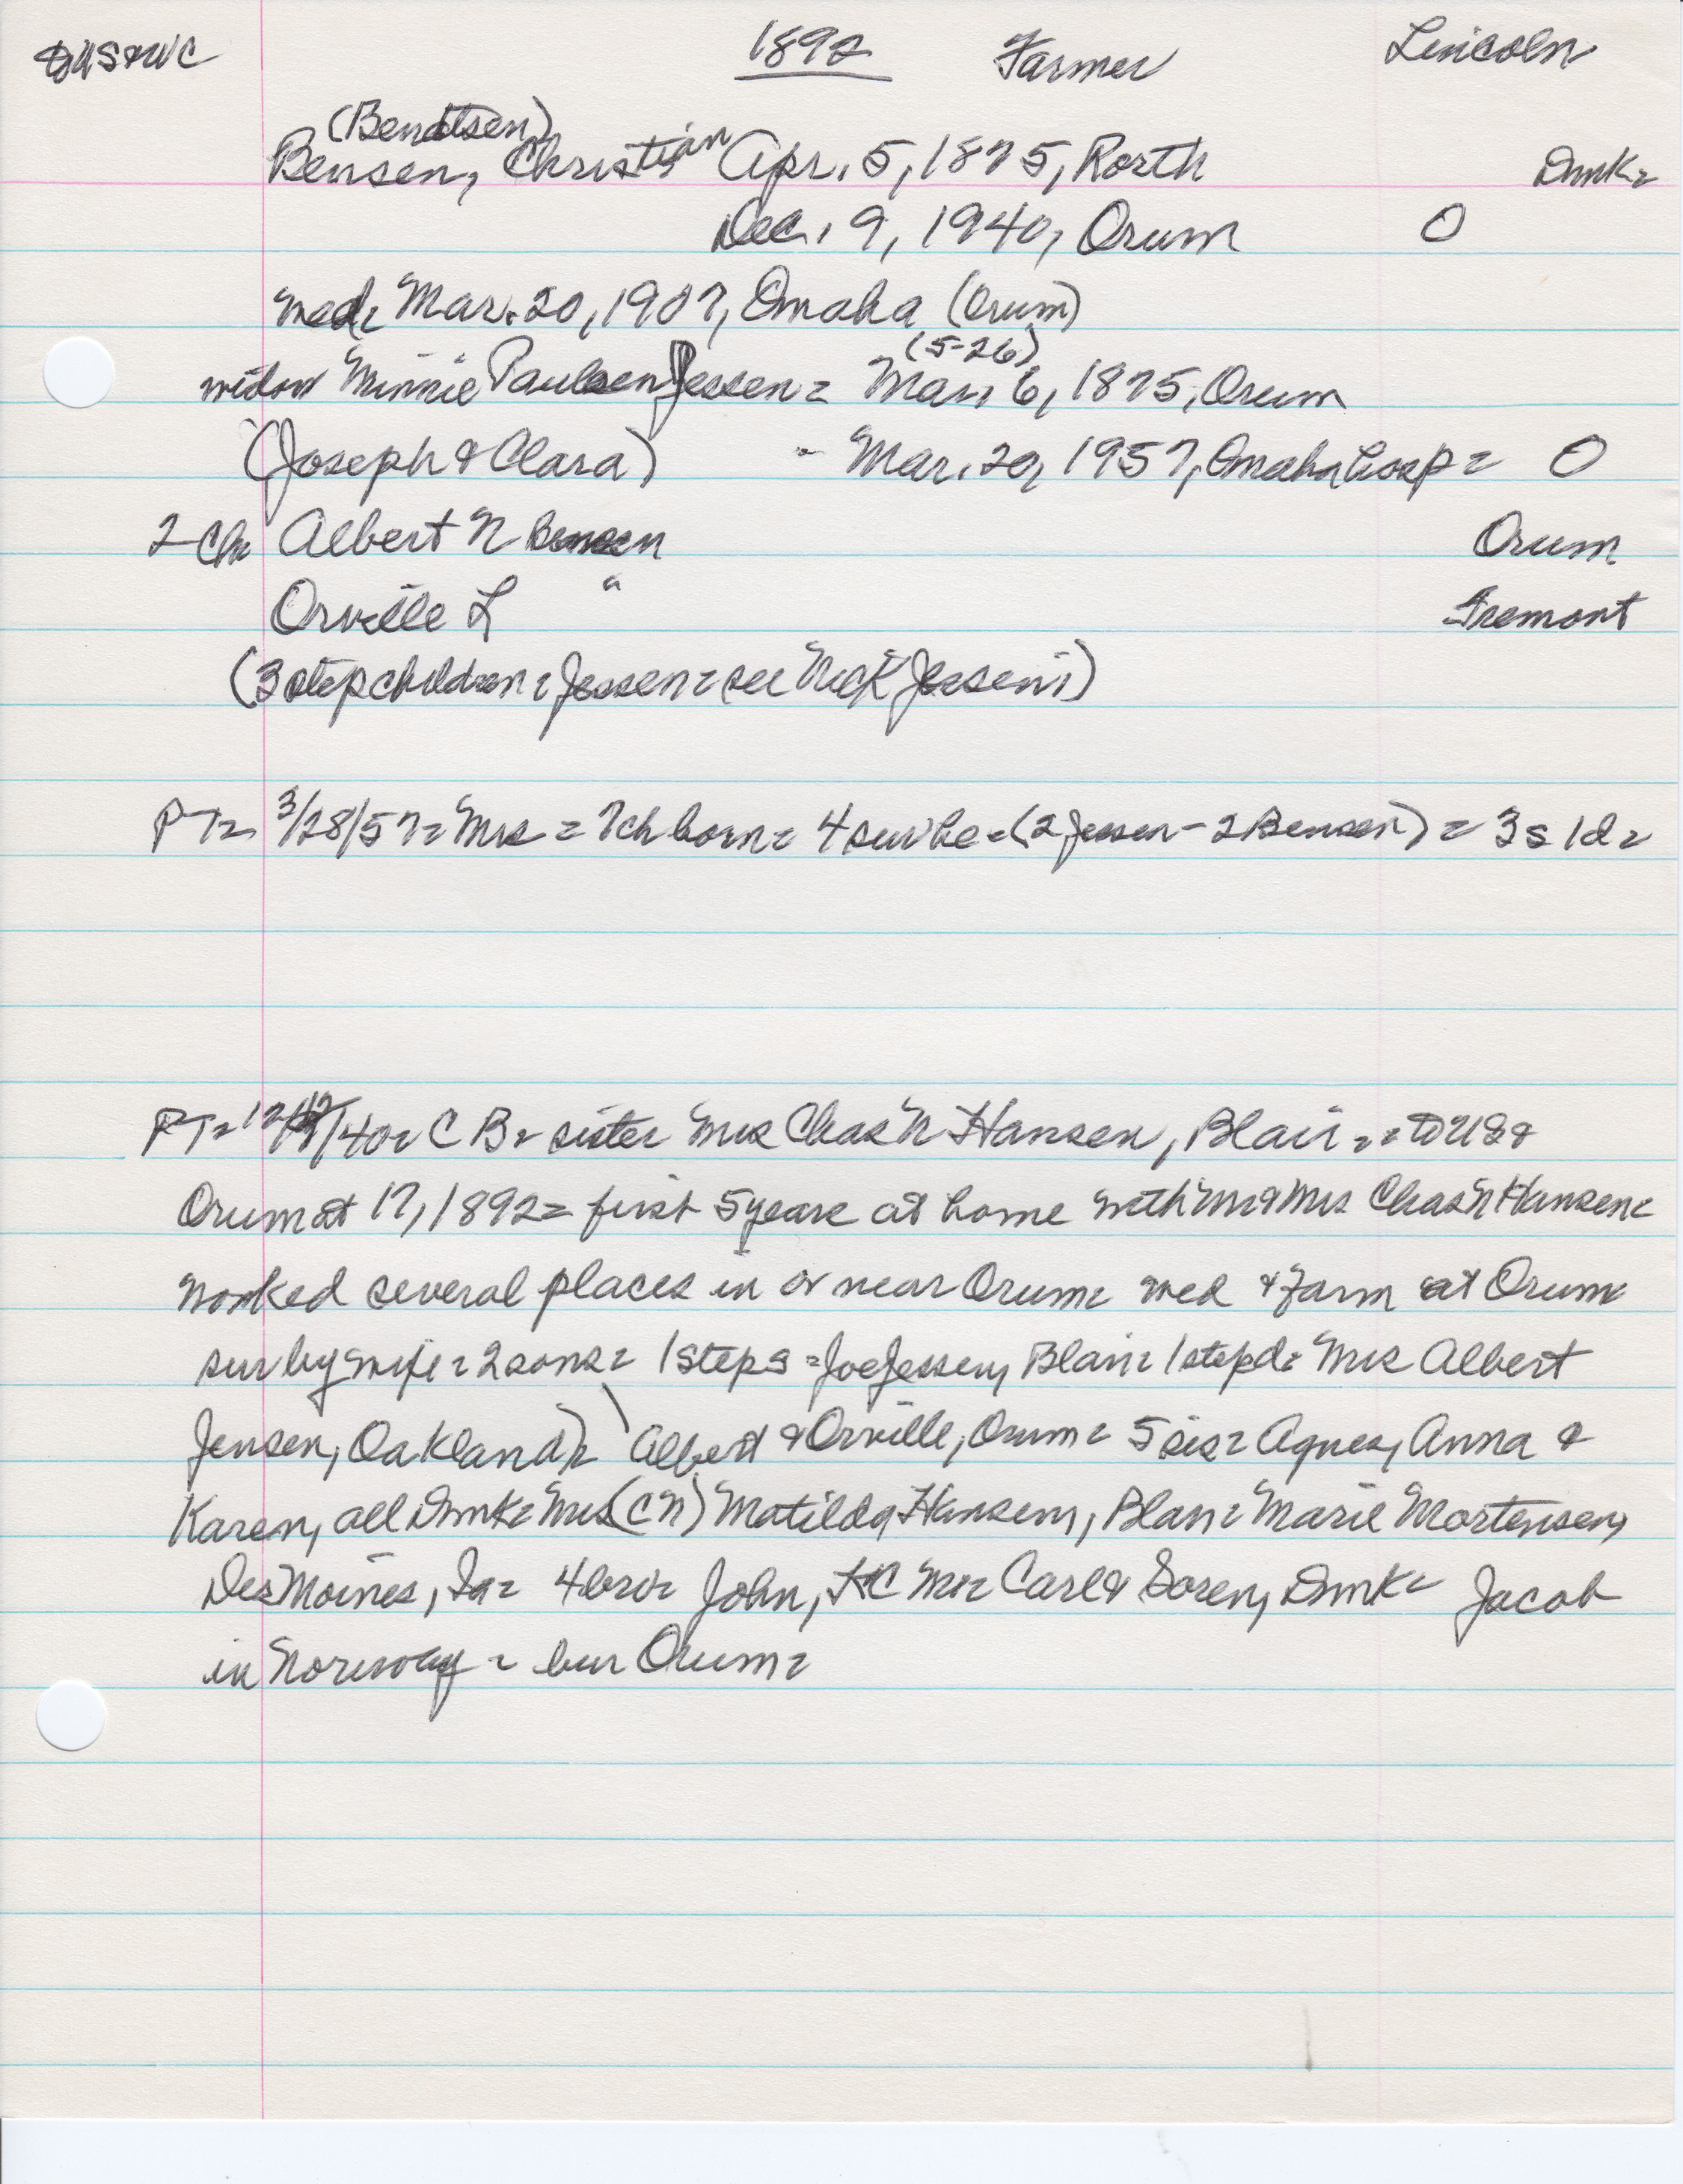 to US & WC 1892 Farmer Lincoln
(Bendtsen)
Bensen, Christian Apr. 5, 1875, Rorth Dmk=
Dec. 9, 1940, Orum O
wed= Mar. 20, 1907, Omaha (Orum)
(5-26)
widow Minnie Paulsen Jessen = Mar. 6, 1875, Orum
(Joseph & Clara) - Mar. 20, 1957, Omaha hosp = O
2 Ch Albert N Bensen Orum
Orville L " Fremont
(3 stepchildren = Jessen = see Nick Jessen)
PT= 3/28/57= Mrs = 7 ch born= 4 surv he = (2 Jessen - 2 Bensen) = 3 s 1 d=
PT= 12/12/40= C B= sister Mrs Chas N Hansen, Blair = = to US &
Orum at 17, 1892= first 5 years at home with Mr & Mrs Chas N Hansen=
worked several places in or near Orum= wed & farm at Orum=
sur by wife = 2 sons = 1 step s = Joe Jessen, Blair= 1 step d= Mrs Albert
Jensen, Oakland)= Albert & Orville, Orum = 5 sis= Agnes, Anna &
Karen, all Dmk= Mrs (C N) Matilda Hansen, Blair= Marie Mortensen,
Des Moines, Ia= 4 bro= John, KC Mo= Carl & Soren, Dmk= Jacob
in Norway = bur Orum=